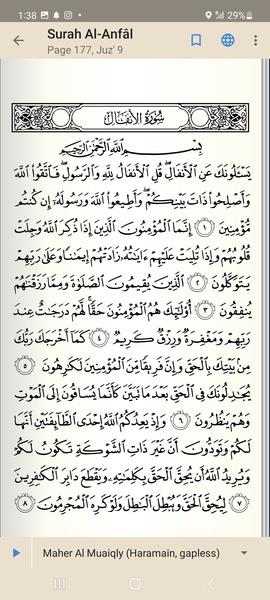 1:38
29%
Surah Al-Anfâl
Page 177, Juz' 9
سُورَةُ الأَنفَالِ
بِسْمِ ٱللَّهِ ٱلرَّحْمَٰنِ ٱلرَّحِيمِ
يَسْـَٔلُونَكَ عَنِ ٱلْأَنفَالِ ۖ قُلِ ٱلْأَنفَالُ لِلَّهِ وَٱلرَّسُولِ ۖ فَٱتَّقُوا۟ ٱللَّهَ
وَأَصْلِحُوا۟ ذَاتَ بَيْنِكُمْ ۖ وَأَطِيعُوا۟ ٱللَّهَ وَرَسُولَهُۥٓ إِن كُنتُم
مُّؤْمِنِينَ ١ إِنَّمَا ٱلْمُؤْمِنُونَ ٱلَّذِينَ إِذَا ذُكِرَ ٱللَّهُ وَجِلَتْ
قُلُوبُهُمْ وَإِذَا تُلِيَتْ عَلَيْهِمْ ءَايَٰتُهُۥ زَادَتْهُمْ إِيمَٰنًا وَعَلَىٰ رَبِّهِمْ
يَتَوَكَّلُونَ ٢ ٱلَّذِينَ يُقِيمُونَ ٱلصَّلَوٰةَ وَمِمَّا رَزَقْنَٰهُمْ
يُنفِقُونَ ٣ أُو۟لَٰٓئِكَ هُمُ ٱلْمُؤْمِنُونَ حَقًّا ۚ لَّهُمْ دَرَجَٰتٌ عِندَ
رَبِّهِمْ وَمَغْفِرَةٌ وَرِزْقٌ كَرِيمٌ ٤ كَمَآ أَخْرَجَكَ رَبُّكَ
مِنۢ بَيْتِكَ بِٱلْحَقِّ وَإِنَّ فَرِيقًا مِّنَ ٱلْمُؤْمِنِينَ لَكَٰرِهُونَ ٥
يُجَٰدِلُونَكَ فِى ٱلْحَقِّ بَعْدَ مَا تَبَيَّنَ كَأَنَّمَا يُسَاقُونَ إِلَى ٱلْمَوْتِ
وَهُمْ يَنظُرُونَ ٦ وَإِذْ يَعِدُكُمُ ٱللَّهُ إِحْدَى ٱلطَّآئِفَتَيْنِ أَنَّهَا
لَكُمْ وَتَوَدُّونَ أَنَّ غَيْرَ ذَاتِ ٱلشَّوْكَةِ تَكُونُ لَكُمْ
وَيُرِيدُ ٱللَّهُ أَن يُحِقَّ ٱلْحَقَّ بِكَلِمَٰتِهِۦ وَيَقْطَعَ دَابِرَ ٱلْكَٰفِرِينَ
٧ لِيُحِقَّ ٱلْحَقَّ وَيُبْطِلَ ٱلْبَٰطِلَ وَلَوْ كَرِهَ ٱلْمُجْرِمُونَ ٨
Maher Al Muaiqly (Haramain, gapless)